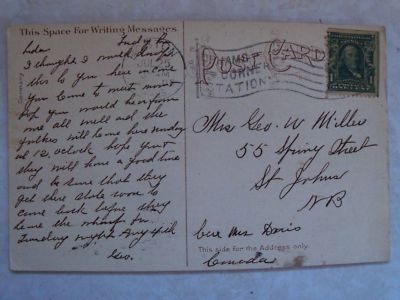 This Space For Writing Messages
I thought I would
this to you here in
You came to meet
hope you would hear from
me all well and the
will come here Sunday
at 12, o,clock hope you
they will have a good time
and be sure that they
get there state room to
come back before they
leave the wharf for
Tuesday night
Geo.
Germany
POST CARD
ADAMS
CORNER
STATION
Mrs Geo. W Miller
55 Spring Street
St Johns
NB
care Mrs Davis
This side for the Address only.
Canada